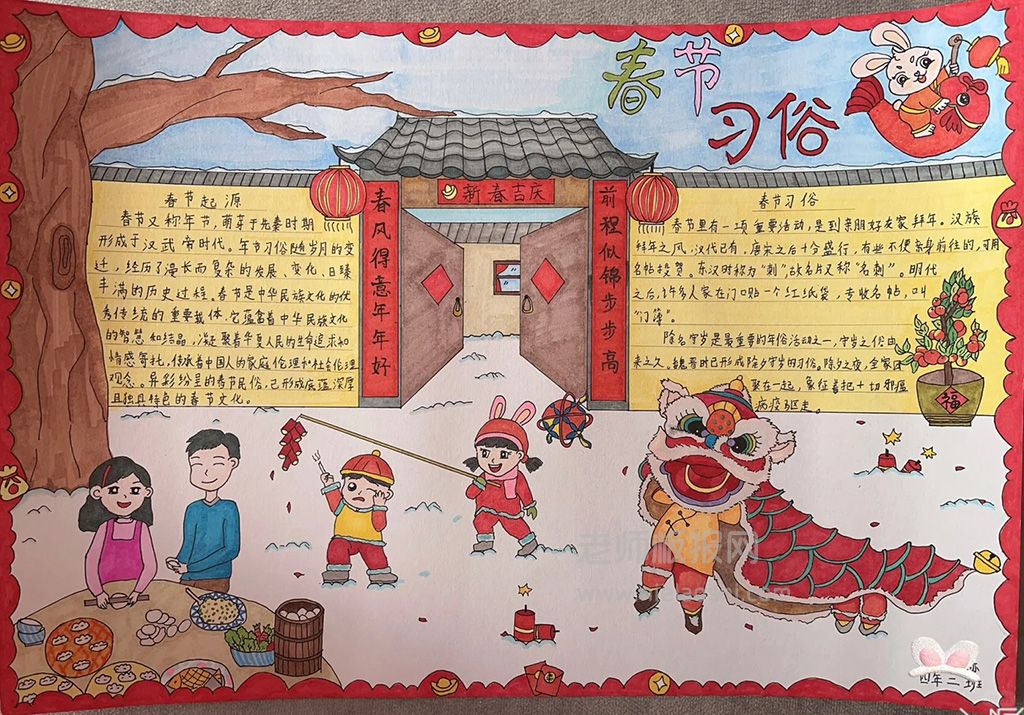 春节
习俗
新春吉庆
春风得意年年好
前程似锦步步高
春节起源
春节又称年节，萌芽于先秦时期
形成于汉武帝时代。年节习俗随岁月的变
迁，经历了漫长而复杂的发展、变化、日臻
丰满的历史过程。春节是中华民族文化的优
秀传统的重要载体，它蕴含着中华民族文化
的智慧和结晶，凝聚着华夏人民的生命追求和
情感寄托，传承着中国人的家庭伦理和社会伦理
观念。异彩纷呈的春节民俗，已形成底蕴深厚
且独具特色的春节文化。
春节习俗
春节里有一项重要活动，是到亲朋好友家拜年。汉族
拜年之风，汉代已有，唐宋之后十分盛行，有些不便亲身前往的，可用
名帖投贺。东汉时称为“刺”，故名片又称“名刺”。明代
之后，许多人家在门口贴一个红纸袋，专收名帖，叫
“门簿”。
除夕守岁是最重要的年俗活动之一，守岁之俗由
来之久。魏晋时已形成除夕守岁的习俗。除夕之夜，全家团
聚在一起，象征着把一切邪瘟
病疫驱走。
福
老师板报网
四年二班